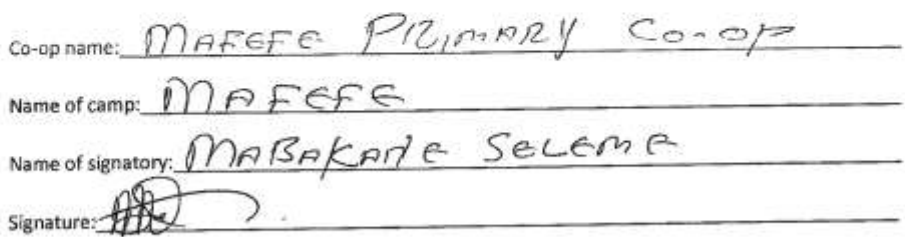 Co-op name: MAFEFE PRIMARY Co-op
Name of camp: MAFEFE
Name of signatory: MABAKANE SELEMA
Signature: